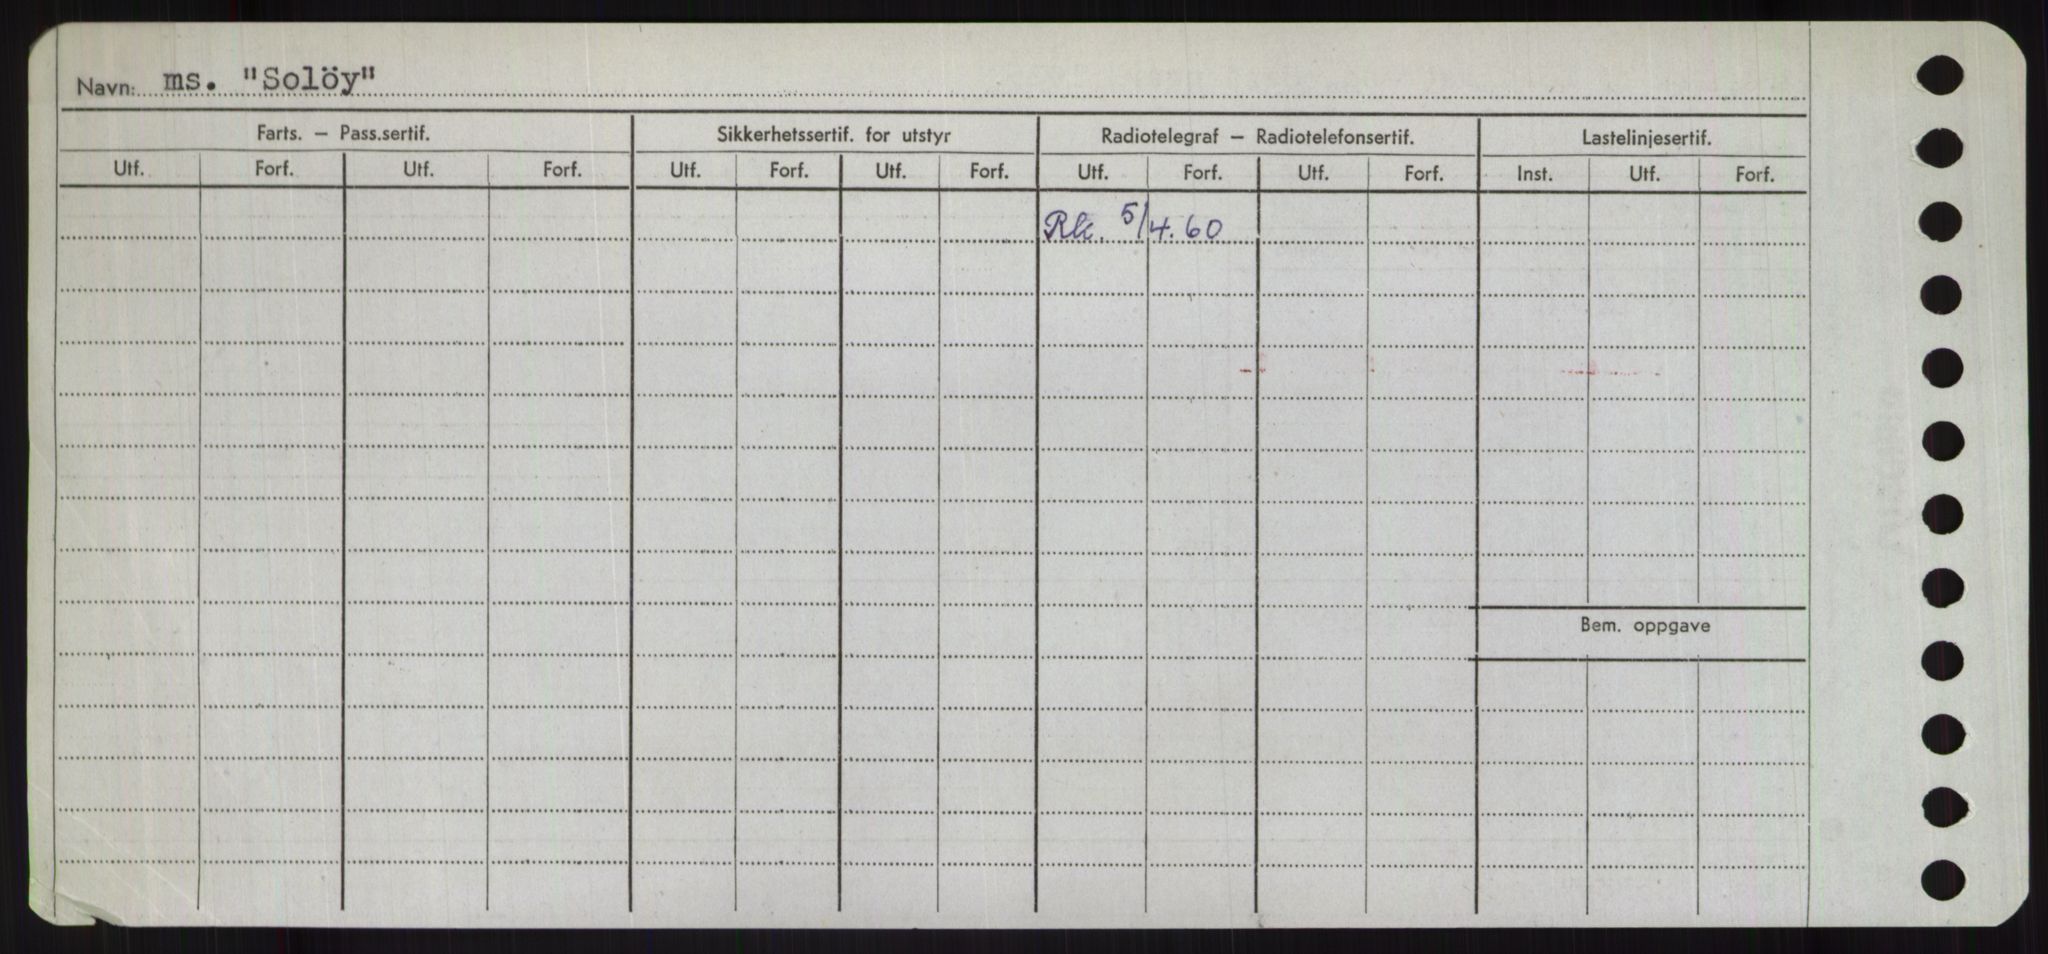 Navn: ms. "Solöy"
Farts. — Pass.sertif. Sikkerhetssertif. for utstyr Radiotelegraf — Radiotelefonsertif. Lastelinjesertif.
Utf. Forf. Utf. Forf. Utf. Forf. Utf. Forf. Utf. Forf. Utf. Forf. Inst. Utf. Forf.
Rk. 5/4.60
Bem. oppgave